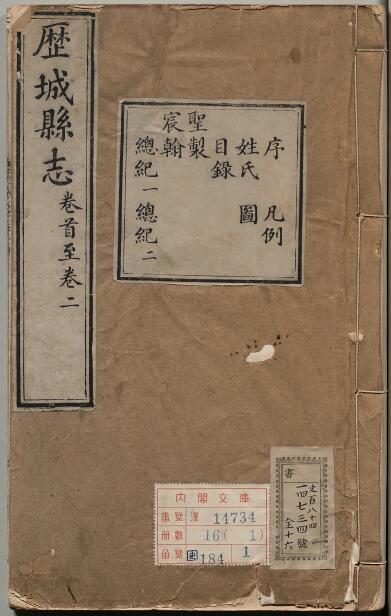 歷城縣志 卷首至卷二
序 凡例
姓氏 圖
目錄
聖製
宸翰
總紀一 總紀二
書
史百八十四
一四七三四號
全十六
内閣文庫
番號 漢 14734
冊數 16(1)
函號 史 184 1